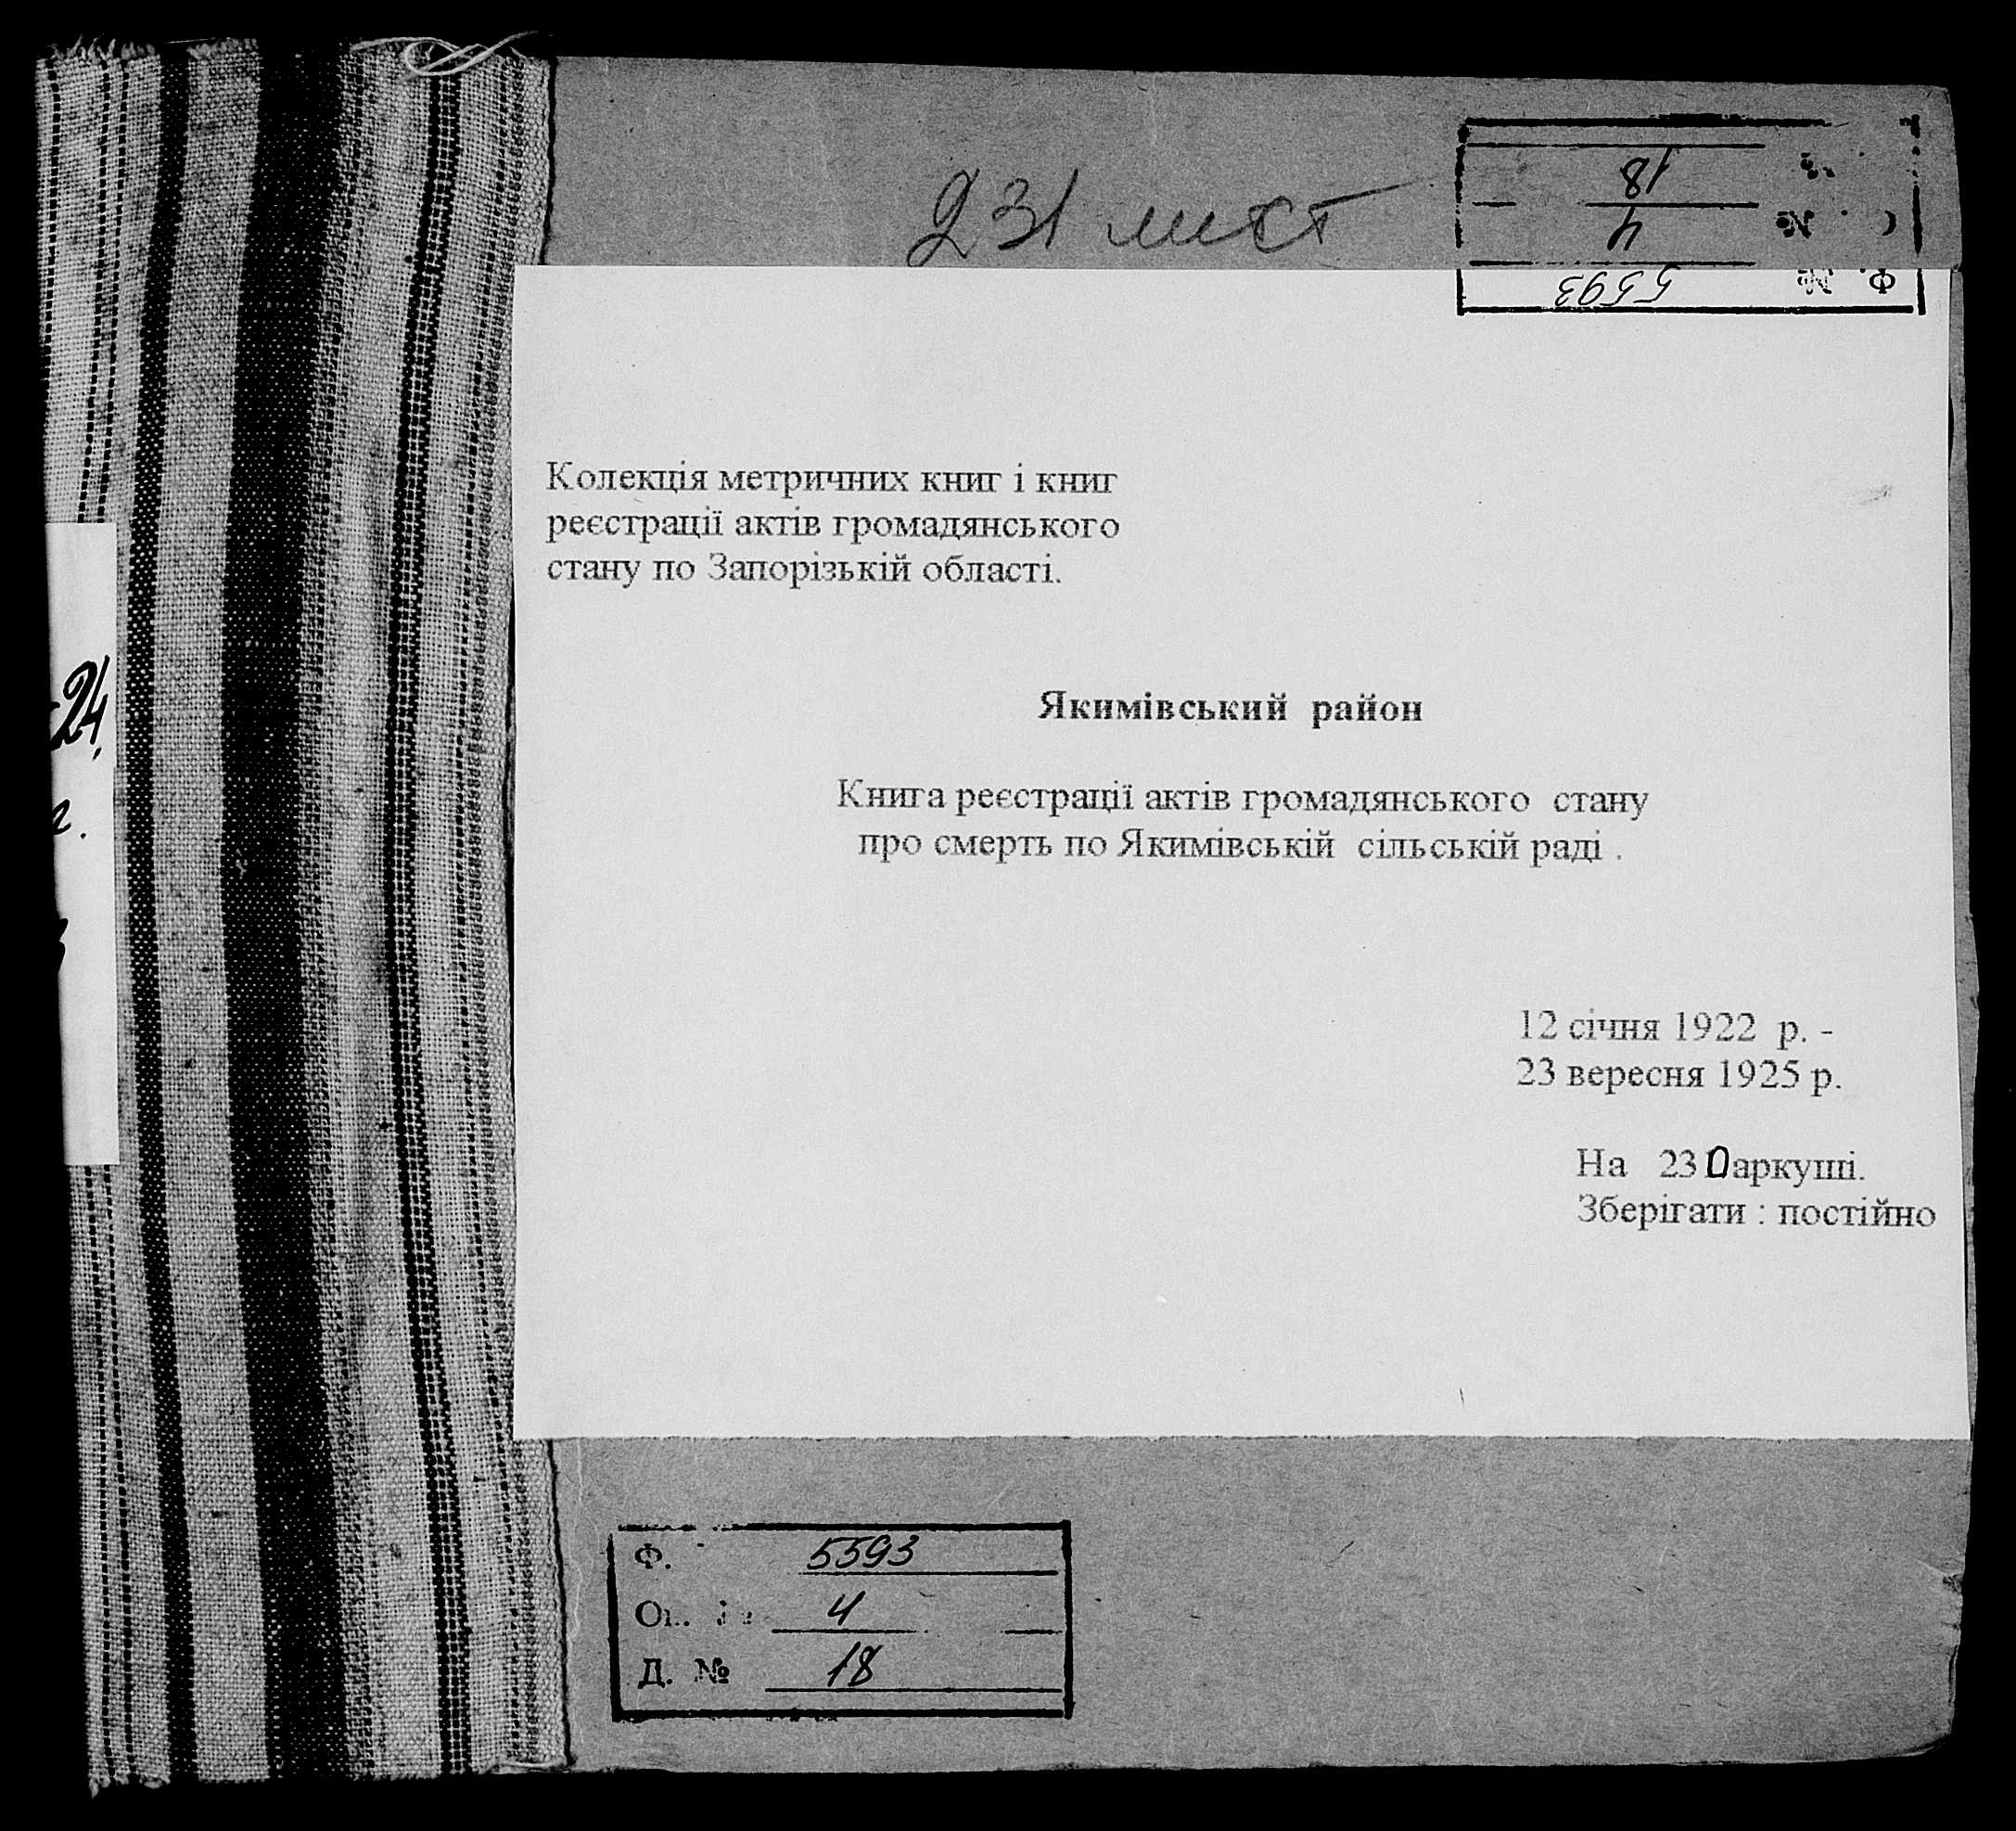 231 лист
Ф. № 5593
№ 4
18
Колекція метричних книг і книг
реєстрації актів громадянського
стану по Запорізькій області.
Якимівський район
Книга реєстрації актів громадянського стану
про смерть по Якимівській сільській раді .
12 січня 1922 р. -
23 вересня 1925 р.
На 230 аркуші.
Зберігати : постійно
24
г.
Ф. 5593
Оп. № 4
Д. № 18